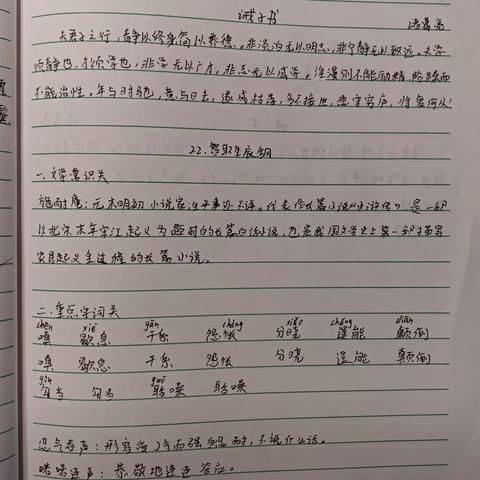 诫子书
诸葛亮
夫君子之行，静以修身，俭以养德。非淡泊无以明志，非宁静无以致远。夫学
须静也，才须学也，非学无以广才，非志无以成学。淫漫则不能励精，险躁则
不能治性。年与时驰，意与日去，遂成枯落，多不接世，悲守穷庐，将复何及！
22.智取生辰纲
一、文学常识关
施耐庵：元末明初小说家，生平事迹不详。代表作长篇小说《水浒传》，是一部
以北宋末年宋江起义为题材的长篇白话小说，也是我国文学史上第一部描写
农民起义全过程的长篇小说。
二、重点字词关
chēn xiē gān chàng xiǎo chěng diān
嗔 歇息 干系 怨怅 分晓 逞能 颠倒
嗔 歇息 干系 怨怅 分晓 逞能 颠倒
gòu guō
勾当 勾当 聒噪 聒噪
忍气吞声：形容受了气而强自忍耐，不说什么话。
喏喏连声：恭敬地连连答应。